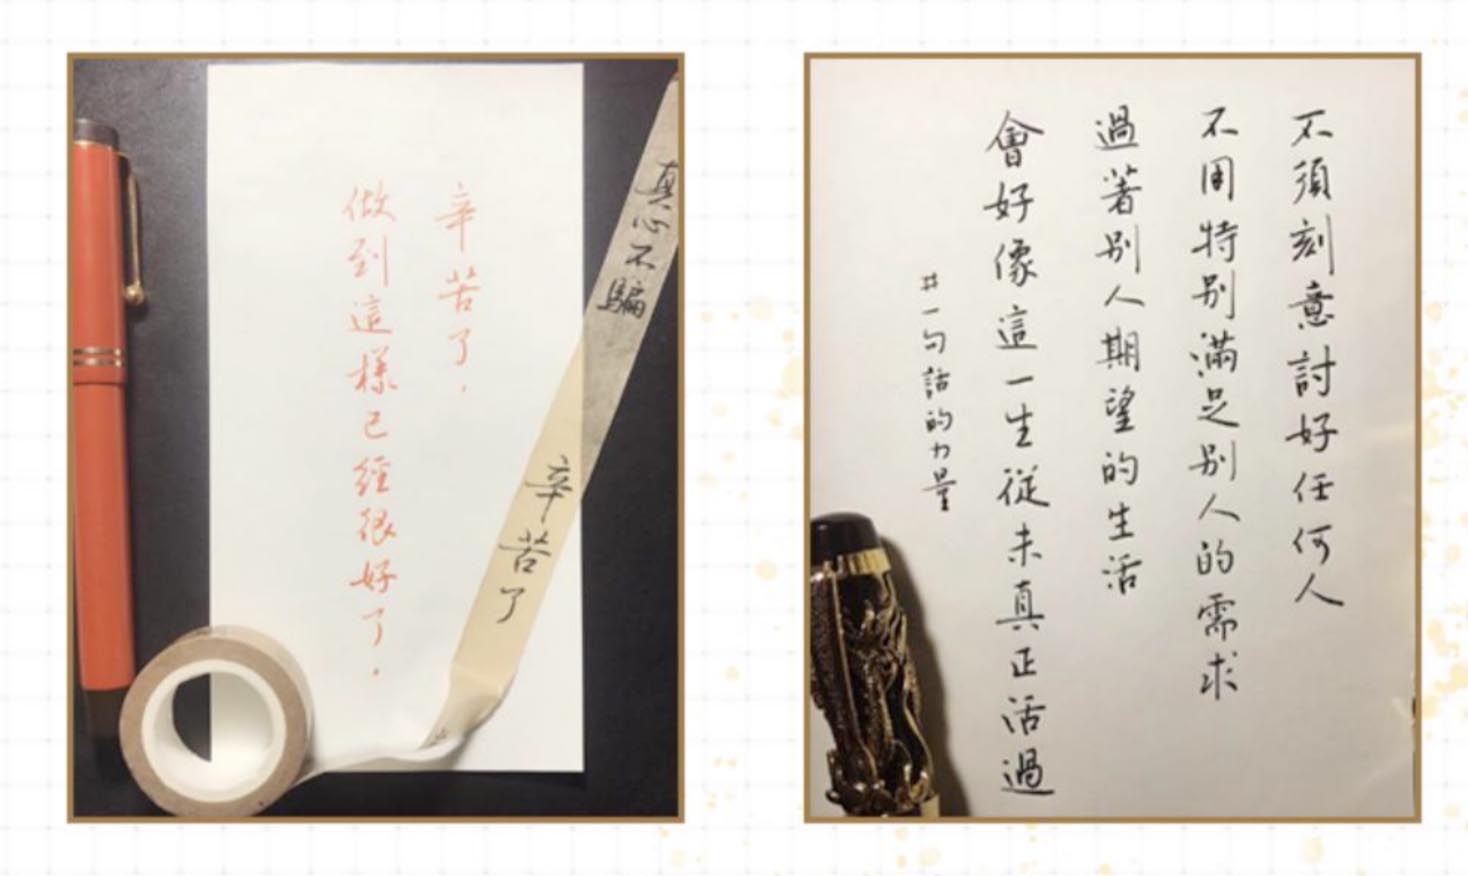 辛苦了，
做到這樣已經很好了。
真心不騙
辛苦了
不須刻意討好任何人
不用特別滿足別人的需求
過著別人期望的生活
會好像這一生從未真正活過
#一句話的力量